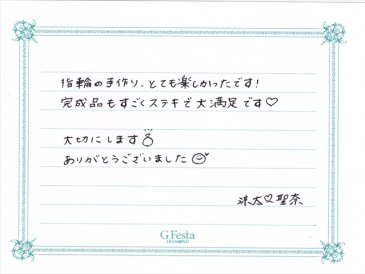 指輪の手作り、とても楽しかったです!
完成品もすごくステキで大満足です♡
大切にします
ありがとうございました
G.Festa